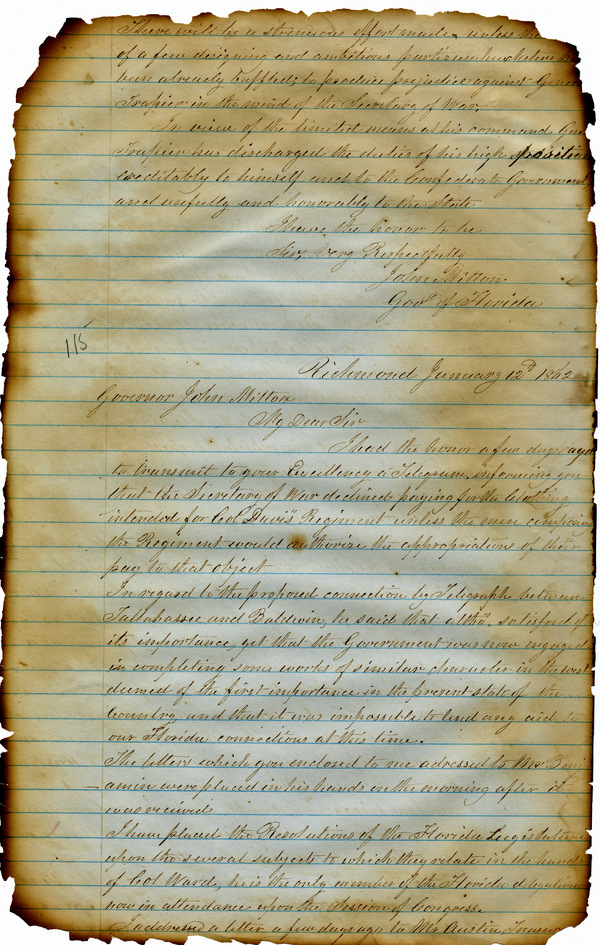 There will be a strenuous effort made, unless the
of a few designing and ambitious parties who have
been already baffled; to produce prejudice against Gene
Trapier in the mind of the Secretary of War.
In view of the limited means at his command Gen
Trapier has discharged the duties of his high position
creditably to himself and to the Confederate Government
and usefully and honorably to the State
I have the honor to be
Sir, Very Respectfully
John Milton
Govr of Florida
115
Richmond January 12d 1862
Governor John Milton
My Dear Sir
I had the honor a few days ago
to transmit to your Excellency a Telegram, informing you
that the Secretary of War declined paying for the clothing
intended for Col Davis's Regiment unless the men composing
the Regiment would authorize the appropriations of their
pay to that object
In regard to the proposed connection by Telegraph between
Tallahassee and Baldwin, he said that altho', satisfied of
its importance, yet that the Government was now engaged
in completing some works of similar character in the west
deemed of the first importance in the present state of the
Country, and that it was impossible to lend any aid to
our Florida connections at this time.
The letters which you enclosed to me adressed to Mr Benj
amin were placed in his hands on the morning after it
was received
I have placed the Resolutions of the Florida Legislature
upon the several subjects to which they relate in the hands
of Col Ward, he is the only member of the Florida delegation
now in attendance upon the Session of Congress.
I addressed a letter a few days ago to Mr Austin, Treasur